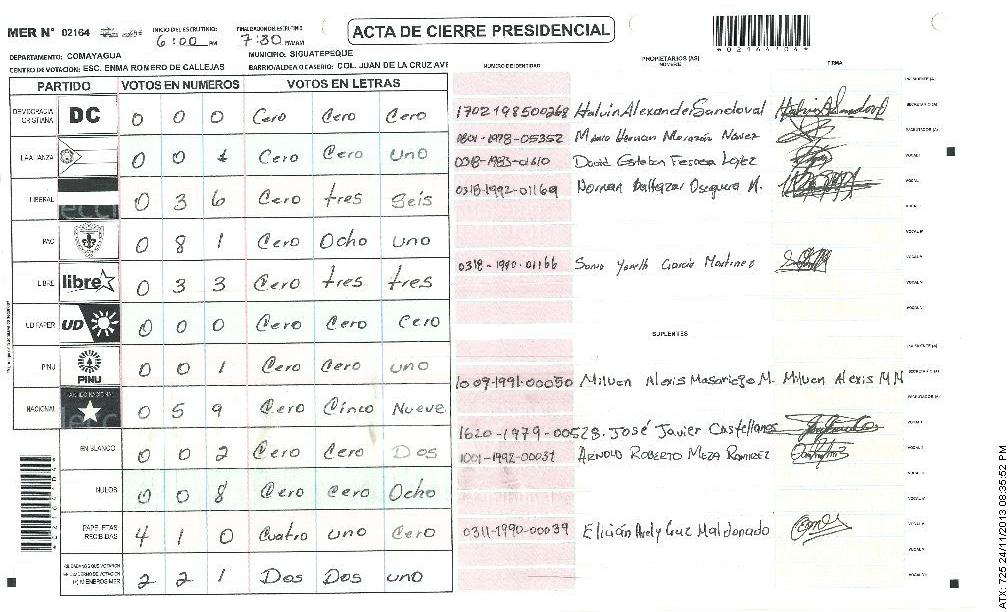 MER N° 02164
INICIO DEL ESCRUTINIO: 6:00 PM
FINALIZACION DE ESCRUTINIO: 7:30 PM
ACTA DE CIERRE PRESIDENCIAL
DEPARTAMENTO: COMAYAGUA
MUNICIPIO: SIGUATEPEQUE
CENTRO DE VOTACION: ESC. ENMA ROMERO DE CALLEJAS
BARRIO/ALDEA O CASERIO: COL. JUAN DE LA CRUZ AVE
PARTIDO VOTOS EN NUMEROS VOTOS EN LETRAS
DEMOCRACIA CRISTIANA DC 0 0 0 Cero Cero Cero
LA ALIANZA 0 0 1 Cero Cero uno
LIBERAL 0 3 6 Cero tres Seis
PAC 0 8 1 Cero Ocho uno
LIBRE libre 0 3 3 Cero tres tres
UD FAPER UD 0 0 0 Cero Cero Cero
PINU PINU 0 0 1 Cero Cero uno
NACIONAL 0 5 9 Cero Cinco Nueve
EN BLANCO 0 0 2 Cero Cero Dos
NULOS 0 0 8 Cero Cero Ocho
PAPELETAS RECIBIDAS 4 1 0 Cuatro uno Cero
CIUDADANOS QUE VOTARON EN CUADERNO DE VOTACION (+) MIEMBROS MER 2 2 1 Dos Dos uno
NUMERO DE IDENTIDAD
PROPIETARIOS (AS)
NOMBRE
FIRMA
1702198500268 Halvin Alexander Sandoval
0801-1978-05352
0318-1983-01610 David Esteban
0318-1992-01169 Norman Baltazar Oseguera M.
0318-1990-01166 Garcia Martinez
SUPLENTES
1009-1991-00050 Milven Alexis M. Milven Alexis M M
1620-1979-00528 José Javier Castellanos
1001-1992-00037 ARNOLD ROBERTO MEZA RAMIREZ
0311-1990-00039 Cruz Maldonado
ATX: 725 24/11/2013 08:35:52 PM